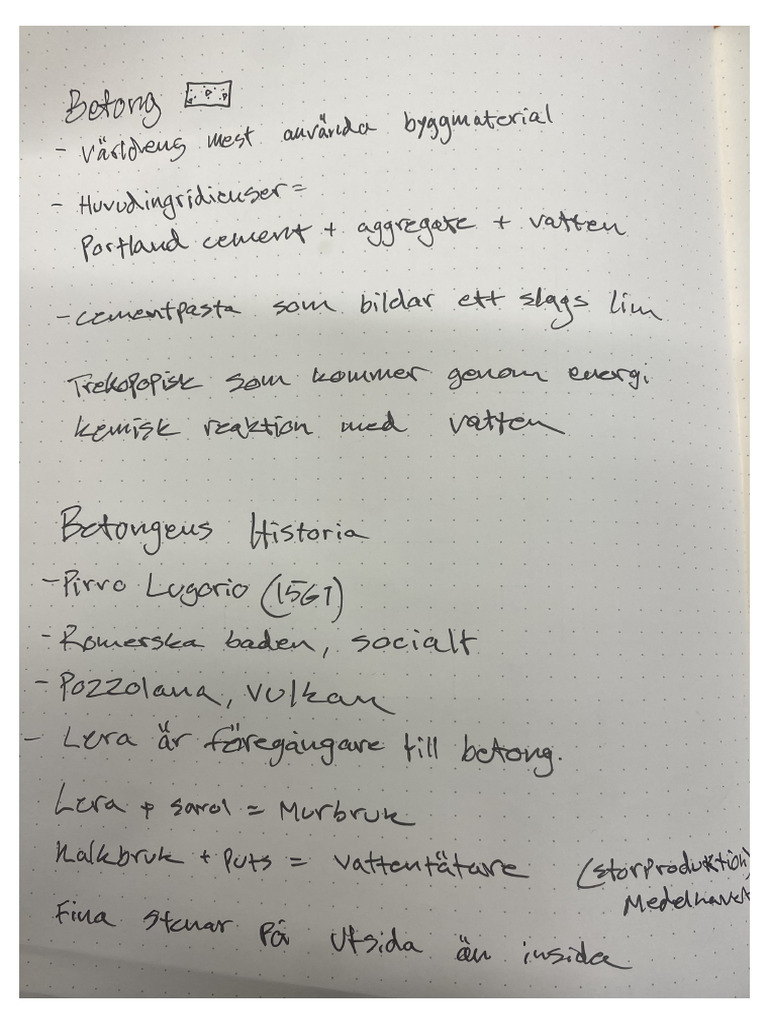 Betong
- Världens mest använda byggmaterial
- Huvudingridienser =
Portland cement + aggregate + vatten
- cementpasta som bildar ett slags lim
som kommer genom energi
kemisk reaktion med vatten
Betongens Historia
- Pirro Lugorio (1561)
- Romerska baden, socialt
- Pozzolana, vulkan
- Lera är föregångare till betong.
Lera + sand = Murbruk
Kalkbruk + puts = vattentätare (storproduktion)
Medelhavet
Fina stenar på utsida än insida